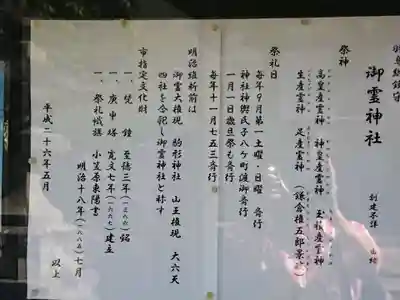 御霊神社
創建不詳
祭神
高皇産霊神 神皇産霊神 玉積産霊神
生産霊神 足産霊神 （鎌倉権五郎景政）
祭礼日
毎年９月第一土曜・日曜 斎行
神社神輿氏子八ケ町渡御斎行
一月一日歳旦祭も斎行
毎年十一月七五三斎行
明治維新前は
御霊大権現 駒形神社 山王権現 大六天
四社を合祀し御霊神社と称す
市指定文化財
一、梵鐘 至徳三年（一三八六）銘
一、庚申塔 寛文七年（一六六七）建立
一、祭礼幟旗 小笠原東陽書
明治十八年（一八八五）七月
以上
平成二十六年五月